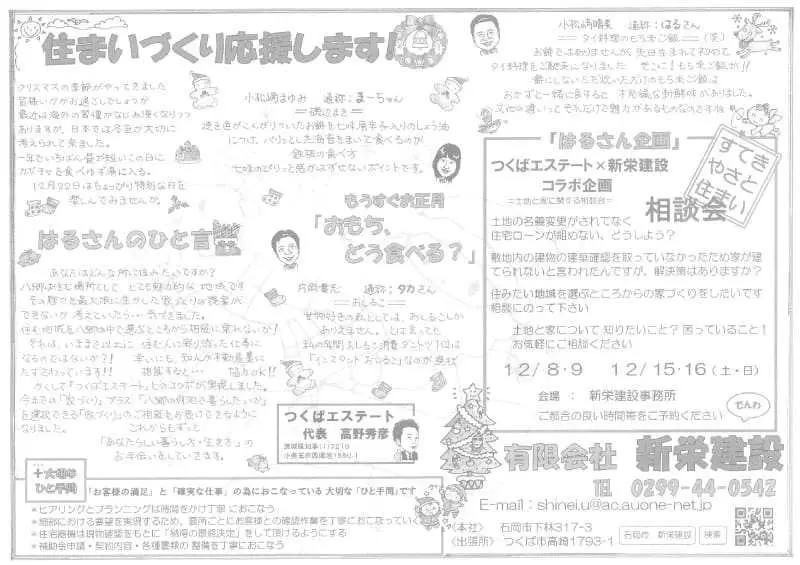 住まいづくり応援します!
クリスマスの季節がやってきました
皆様いかがお過ごしでしょうか
最近は海外の習慣がなじみ深くなりつつ
ありますが、日本では冬至が大切に
考えられて来ました。
一年でいちばん昼が短いこの日に
カボチャを食べゆず湯に入る。
12月22日はちょっぴり特別な日を
楽しんでみませんか。
小松崎まゆみ 通称:まーちゃん
磯辺まき
焼き色がこんがりついたお餅を七味唐辛子入りのしょう油
につけ、パリっとした海苔をまいて食べるのが
我家の食べ方
七味のぴりっと感がはずせないポイントです。
小松崎晴美 通称:はるさん
タイ料理のもち米ご飯 (笑)
お餅ではありませんが、先日生まれて初めて
タイ料理をご馳走になりました そこに!もち米ご飯が!!
おかずと一緒に食すると 不思議な新鮮味がありました。
もうすぐお正月
「おもち、
どう食べる?」
片岡貴志 通称:タカさん
おしるこ
甘物好きの私としては、おしるこしか
ありえません。
「インスタントおしるこ」なのが現状
はるさんのひと言
あなたはどんな所に住みたいですか?
八郷は住む場所として とても魅力的な地域です
その魅力を最大限に生かした家づくりの提案が
できないか考えていたら…気づきました。
住む地域を八郷の中で選ぶところから相談に乗れないか!
それは、いままで以上に ほんとに寄り添った仕事に
なるのではないか?! 幸いにも、知人が不動産業に
たずさわっています!! 相談すると… 協力OK!!
かくして「つくばエステート」とのコラボが実現しました。
今までの「家づくり」プラス 「八郷の何処で暮らしたいか」
を選択できる「家づくり」のご相談もお受けできるように
なりました。 これからもずっと
「あなたらしい暮らし方・生き方」の
お手伝いをしていきます。
「はるさん企画」
つくばエステート×新栄建設
コラボ企画
=土地と家に関する相談会=
相談会
すてき
やさと
住まい
土地の名義変更がされてなく
住宅ローンが組めない、どうしよう?
敷地内の建物の建築確認を取っていなかったため家が建
てられないと言われたんですが、解決策はありますか?
住みたい地域を選ぶところからの家づくりをしたいです
相談にのって下さい
土地と家について 知りたいこと? 困っていること!
お気軽にご相談ください
12/8・9 12/15・16(土・日)
会場 : 新栄建設事務所
ご都合の良い時間帯をご予約ください
でんわ
つくばエステート
代表 高野秀彦
有限会社 新栄建設
TEL 0299-44-0542
E-mail:shinei.u@ac.auone-net.jp
〈本社〉 石岡市下林317-3
〈出張所〉 つくば市高崎1793-1
石岡市 新栄建設
検索
十大切な
ひと手間
「お客様の満足」と「確実な仕事」の為におこなっている 大切な「ひと手間」です
*ヒアリングとプランニングは時間をかけ丁寧におこなう
*細部における要望を実現するため、要所ごとにお客様との確認作業を丁寧におこなっていく
*住宅器機は現物確認をもとに「納得の最終決定」をして頂けるようにする
*補助金申請・契約内容・各種書類の整備を丁寧におこなう